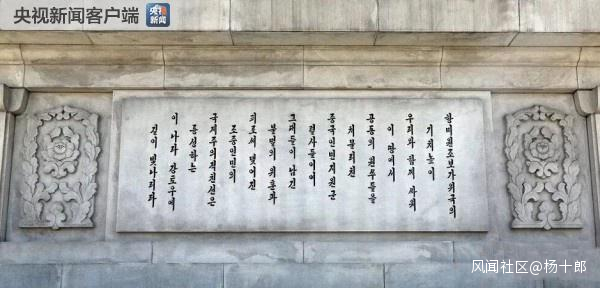 央视新闻客户端
CCTV
央视新闻
항미원조보가위국의
기치높이
우리와 함께 싸워
이 땅에서
공동의 원쑤들을
쳐물리친
중국인민지원군
렬사들이여
그대들이 남긴
불멸의 위훈과
피로써 맺어진
조중인민의
국제주의적친선은
륭성하는
이 나라 강토우에
길이 빛나리라
风闻社区@杨十郎